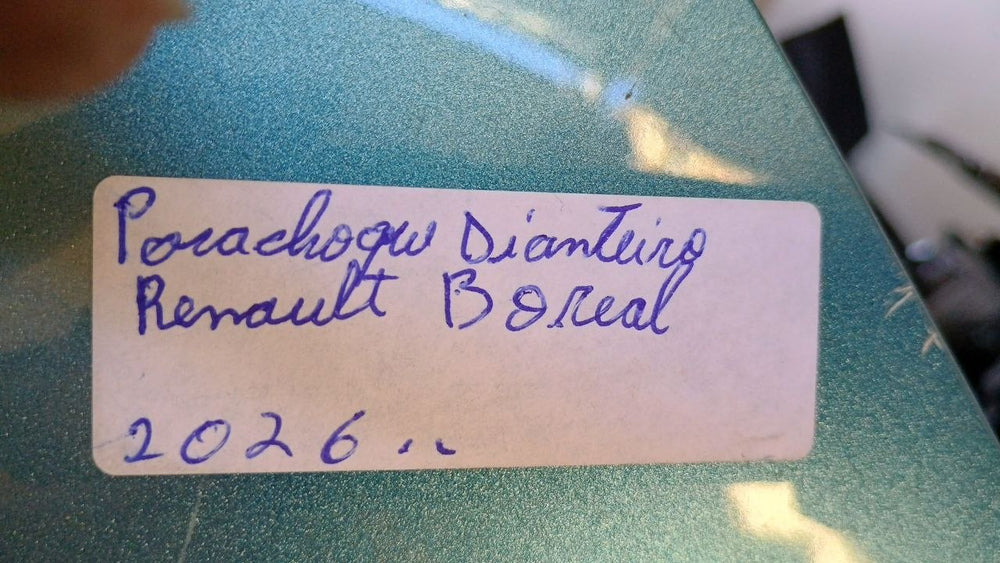 Parachoque Dianteiro
Renault Boreal
2026..